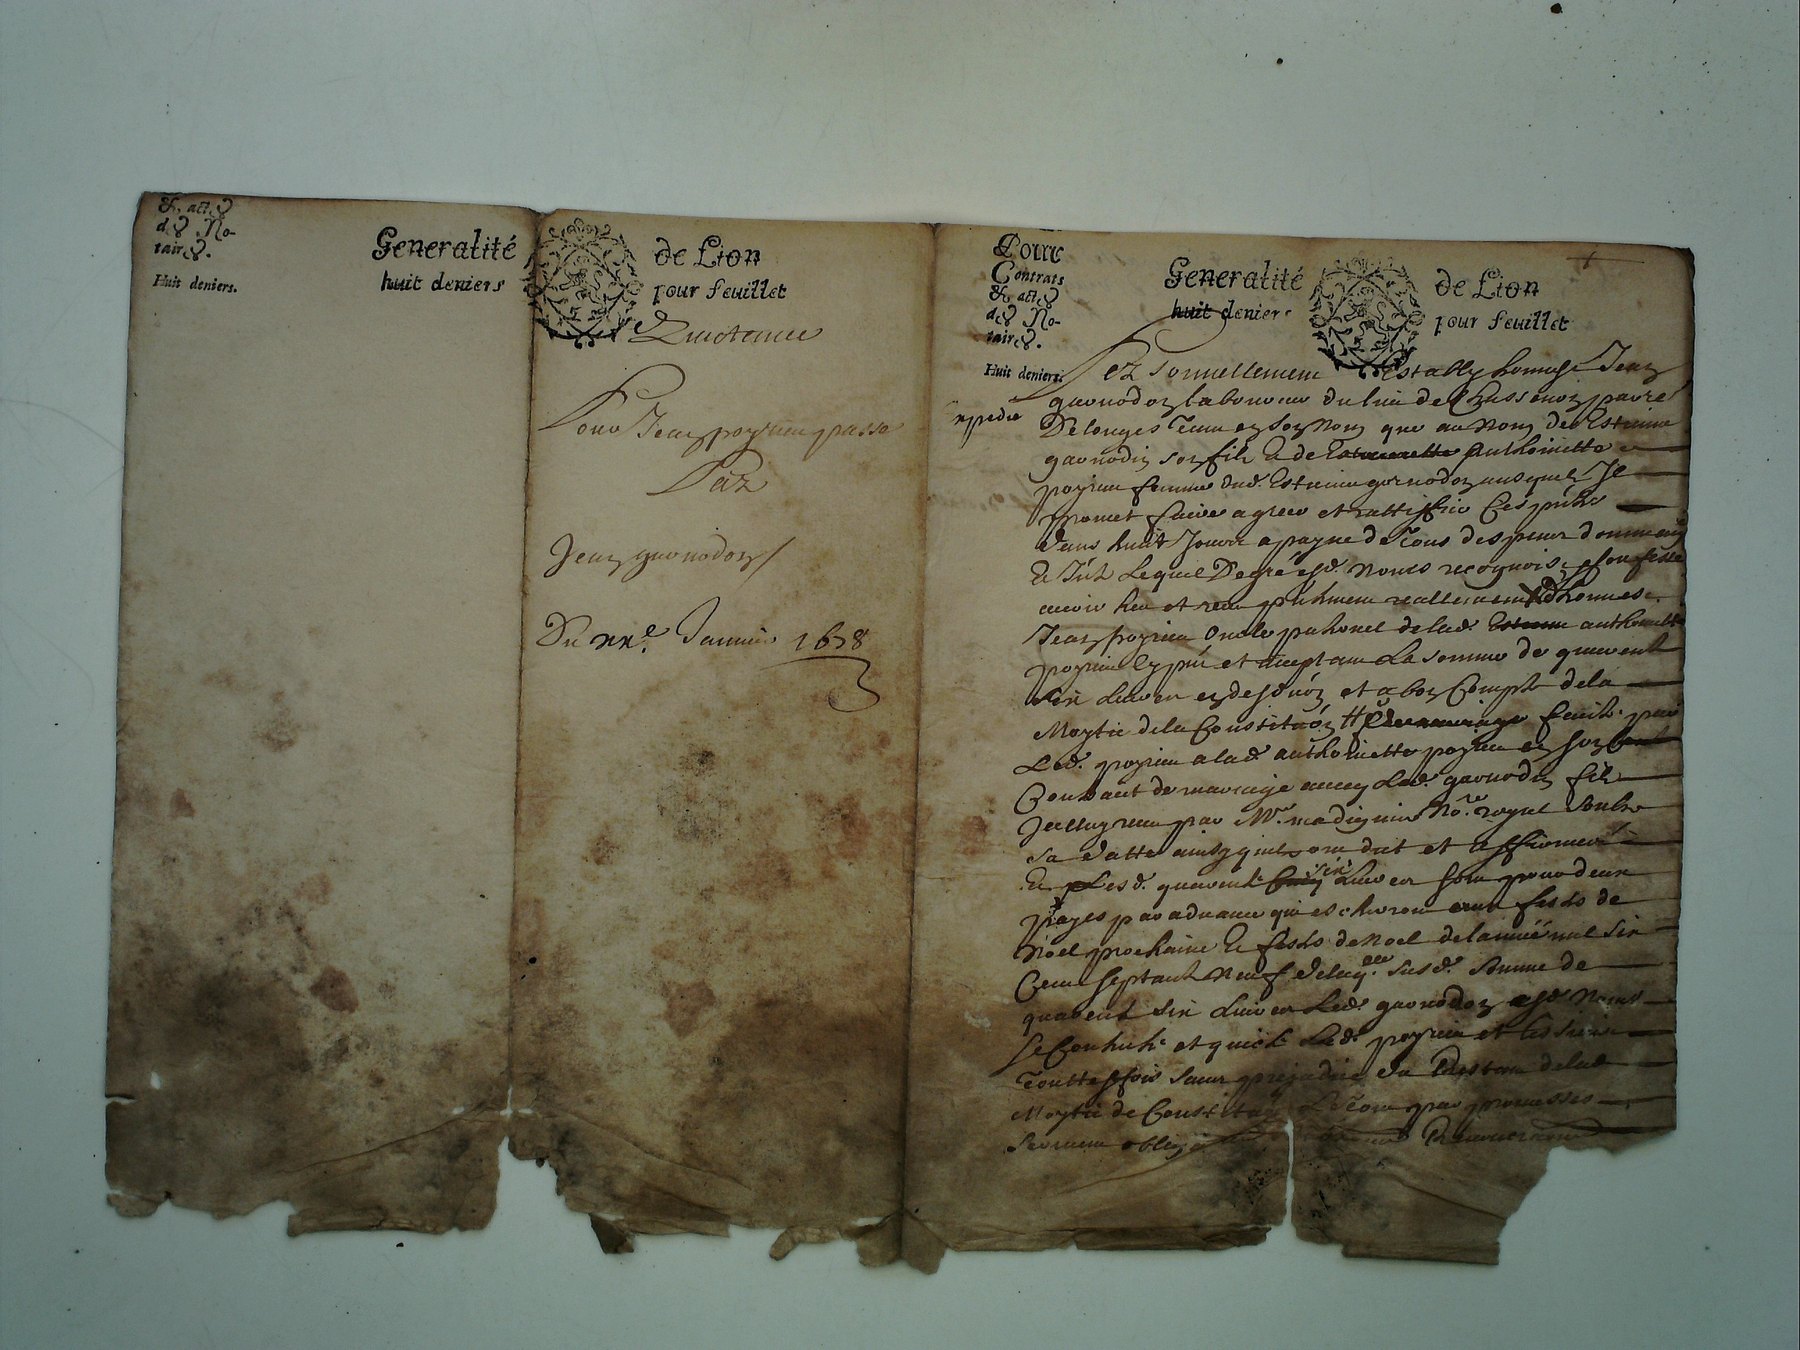 & actes
des No-
taires.
Huit deniers.
Generalité de Lion
huit deniers pour feuillet
Quictance
Pour Jean poyrieu passé
Par
Jean gaonodon
Du xxe. Janvier 1678
Pour
Contrats
& actes
des No-
taires.
Huit deniers.
Generalité de Lion
huit deniers pour feuillet
expedié
Personnellement Estably homme Jean
gaonodon laboureur du lieu de parre
De longes tant en son nom que au nom de Estienne
gaonodin son filz & de Anthoinette
poyrieu femme dud. Estienne gaonodon ausquelz Il
promet faire agreer et rattiffier Ces pntes
dans huit Jours a payne de tous despens dommaig
& Lequel De gré esd. noms recognoist et confesse
avoir heu et receu reallement d'honneste
Jean poyrieu oncle paternel de lad. anthoinette
poyrieu et acceptant La somme de quarente
six Livres et a bon Compte de la
Moytie de la Constituon faite par
Led. poyrieu a lad. anthoinette poyrieu en son
Contract de mariage avecq Led. gaonodin filz
receu par Me. No.re royal Soubz
sa datte ainsy quilz ont dict et affirmé
& Lesd. quarente six Livres sont pour deux
payes par advance qui escherront aux festes de
Noel prochaine & festes de Noel de lannée mil six
Cent septante neuf de laq.lle susd. somme de
quarente six Livres Led. gaonodon esd. noms
se Contente et quicte Led. poyrieu et les siens
touttesfois sans prejudice du Restant de lad.
Moytie de Constituon par promesses
serment oblig